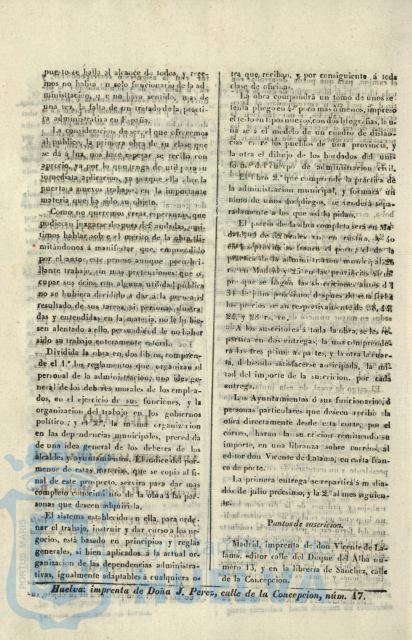 puesto se halla al alcance de todos, y cree-
mos no habrá un solo funcionario de la ad-
ministracion, que no haya sentido, mas de
una vez, la falta de un tratado de la prácti-
ca administrativa en España.
La consideracion de ser el que ofrecemos
al público, la primera obra de su clase que
se dá á luz, nos hace esperar se reciba con
aprecio, ya por lo que tenga de util para su
inmediata aplicacion, ya porque ella abre la
puerta á nuevos trabajos en la importante
materia que ha sido su objeto.
Como no queremos crear esperanzas, que
pudiesen juzgarse despues defraudadas, omi-
timos hablar sobre el mérito de la obra, li-
mitándonos á manifestar que, emprendido
por el autor este penoso aunque poco bri-
llante trabajo, sin mas pretensiones que
ocupar sus ócios con alguna utilidad pública
no se hubiera decidido á dar á la prensa el
resultado de sus tareas, si personas ilustra-
das y entendidas en la materia, no le hubie-
sen alentado á ello, persuadiéndole no haber
sido su trabajo enteramente estéril.
Dividida la obra en dos libros, compren-
de el 1.º los reglamentos que organizan el
personal de la administracion, una idea ge-
neral de los deberes morales de los emplea-
dos, en el ejercicio de sus funciones, y la
organizacion del trabajo en los gobiernos
político; y el 2.º, la misma organizacion
en las dependencias municipales, precedida
de una idea general de los deberes de los
alcaldes y ayuntamientos. El índice del por-
menor de estas materias, que se copia al fi-
nal de este prospecto, servirá para dar mas
completo conocimiento de la obra á las per-
sonas que deseen adquirirla.
El sistema establecido en ella, para orde-
nar el trabajo, instruir y dar curso á los ne-
gocios, está basado en principios y reglas
generales, si bien aplicados á la actual or-
ganizacion de las dependencias administra-
tivas, igualmente adaptables á cualquiera o-
tra que reciban, y por consiguiente á toda
clase de oficinas.
La obra compondrá un tomo de unos se-
tenta pliegos en 4.º poco mas ó menos, impreso
el testo en tipos nuevos, con dos litografías, la u-
na será el modelo de un cuadro de distan-
cias entre los pueblos de una provincia, y
la otra el dibujo de los bordados del uni-
forme del cuerpo de administracion civil.
El libro 2.º que comprende la práctica de
la administracion municipal, y formará un
tomo de unos doce pliegos, se venderá sepa-
radamente á los que así lo pidan.
El precio de la obra completa será en Ma-
drid
A los suscritores á toda la obra, se les re-
partirá en dos entregas; la una comprende-
rá las tres primeras partes, y la otra la cuar-
ta, debiendo satisfacerse anticipada, la mi-
tad del importe de la suscricion, por cada
entrega.
Los Ayuntamientos ó sus funcionarios, ó
personas particulares que deseen recibir la
obra directamente desde esta corte, por el
correo, harán la suscricion remitiendo su
importe, en una libranza sobre correos, al
editor don Vicente de Lalama, en carta fran-
ca de porte.
La primera entrega se repartirá á media-
dos de julio próximo, y la 2.ª al mes siguien-
te.
Puntos de suscricion.
Madrid, imprenta de don Vicente de La-
lama, editor calle del Duque del Alba nú-
mero 13, y en la librería de Sanchez, calle
de la Concepcion.
Huelva: imprenta de Doña J. Perez, calle de la Concepcion, núm. 17.